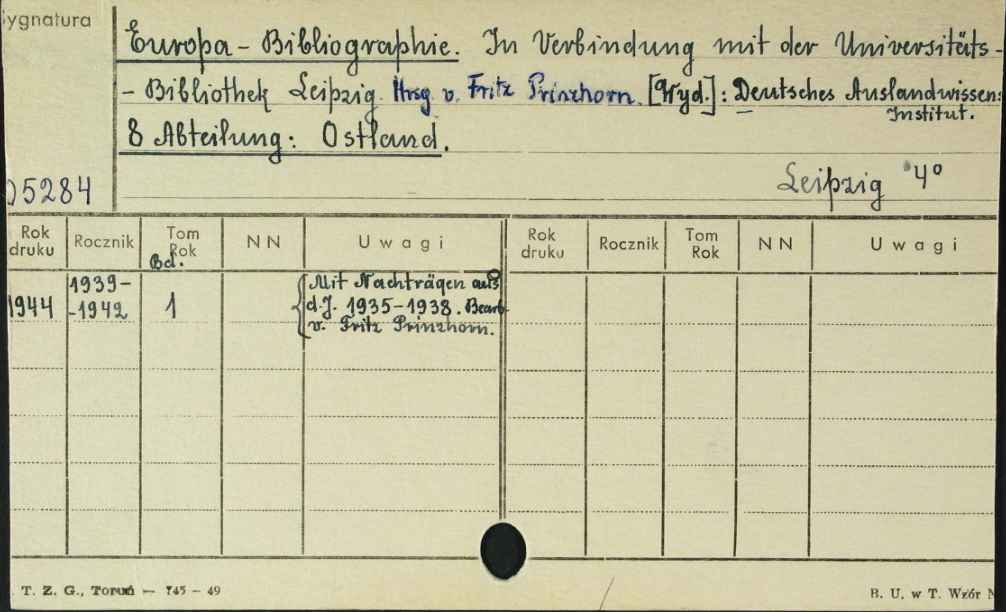 ygnatura
Europa - Bibliographie. In Verbindung mit der Universitäts-
- Bibliothek Leipzig. Hrsg v. Fritz Prinzhorn. [Wyd.]: Deutsches Auslandwissen:
Institut.
8 Abteilung: Ostland.
05284
Leipzig 4°
Rok druku Rocznik Tom Rok Bd. N N U w a g i Rok druku Rocznik Tom Rok N N U w a g i
1944 1939-1942 1 Mit Nachträgen aus
d. J. 1935-1938. Bearb
v. Fritz Prinzhorn.
T. Z. G., Toruń — 745 - 49
B. U. w T. Wzór N